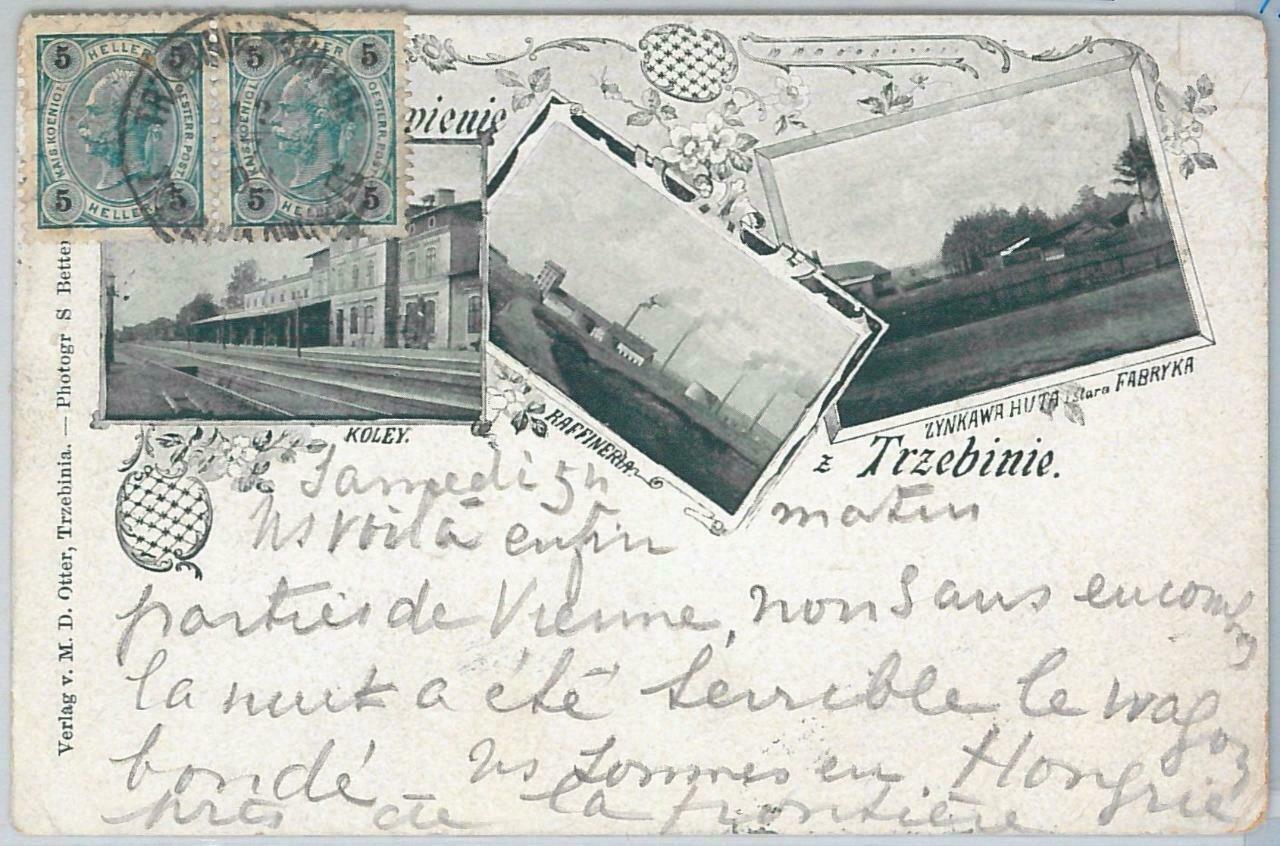 5 HELLER 5 5 HELLER 5
KAIS. KOENIGL. OESTERR. POST. KAIS. KOENIGL. OESTERR. POST.
5 HELLER 5 5 HELLER 5
wienie
KOLEY.
RAFFINERIA
ZYNKAWA HUTA i stara FABRYKA
z Trzebinie.
Verlag v. M. D. Otter, Trzebinia. — Photogr S Better
Samedi 5h matin
Ns voilà enfin
parties de Vienne, non sans encombre
la nuit a été terrible le wagon
bondé. Ns sommes en Hongrie
près de la frontière